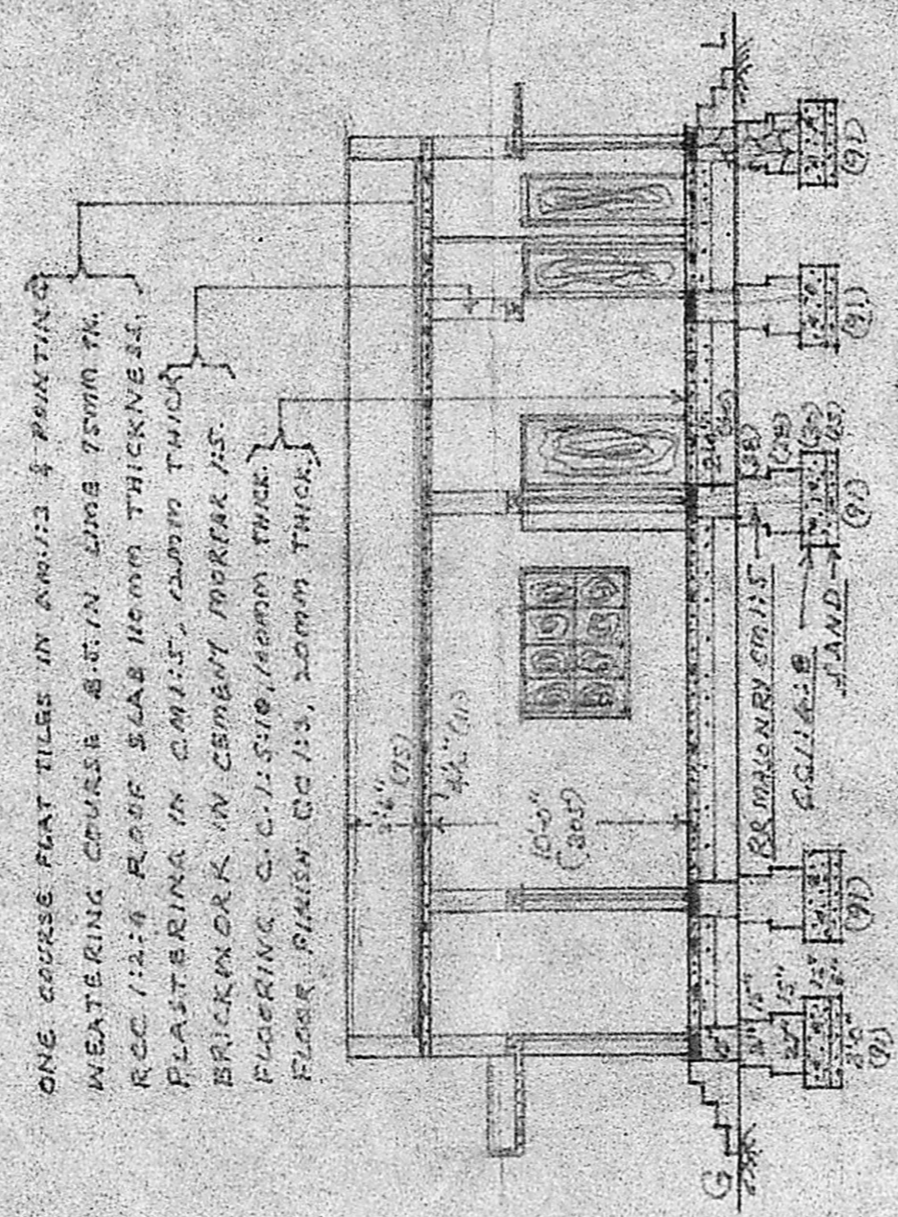 ONE COURSE FLAT TILES IN CM 1:3 & POINTING
WEATERING COURSE B.J. IN LIME 75mm TK.
RCC 1:2:4 ROOF SLAB 110mm THICKNESS.
PLASTERING IN CM 1:5, 12mm THICK
BRICKWORK IN CEMENT MORTAR 1:5.
FLOORING C.C. 1:5:10, 100mm THICK.
FLOOR FINISH CC 1:3, 20mm THICK.
2'6" (75)
4½" (11)
10'-0"
(305)
2'0"
(38)
(38)
(15)
(91)
(91)
(91)
(91)
(91)
RR MASONRY CM 1:5
C.C. 1:4:8
SAND
15"
15"
15"
6"
3'0"
G
L